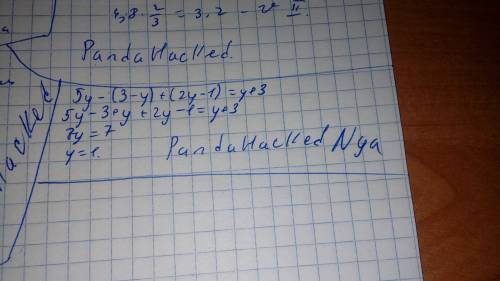 4,8 · 2/3 = 3,2 - II.
PandaHacked.
5y - (3-y) + (2y-1) = y+3
5y - 3+y + 2y - 1 = y+3
7y = 7
y = 1.
PandaHacked Nya
Hacked